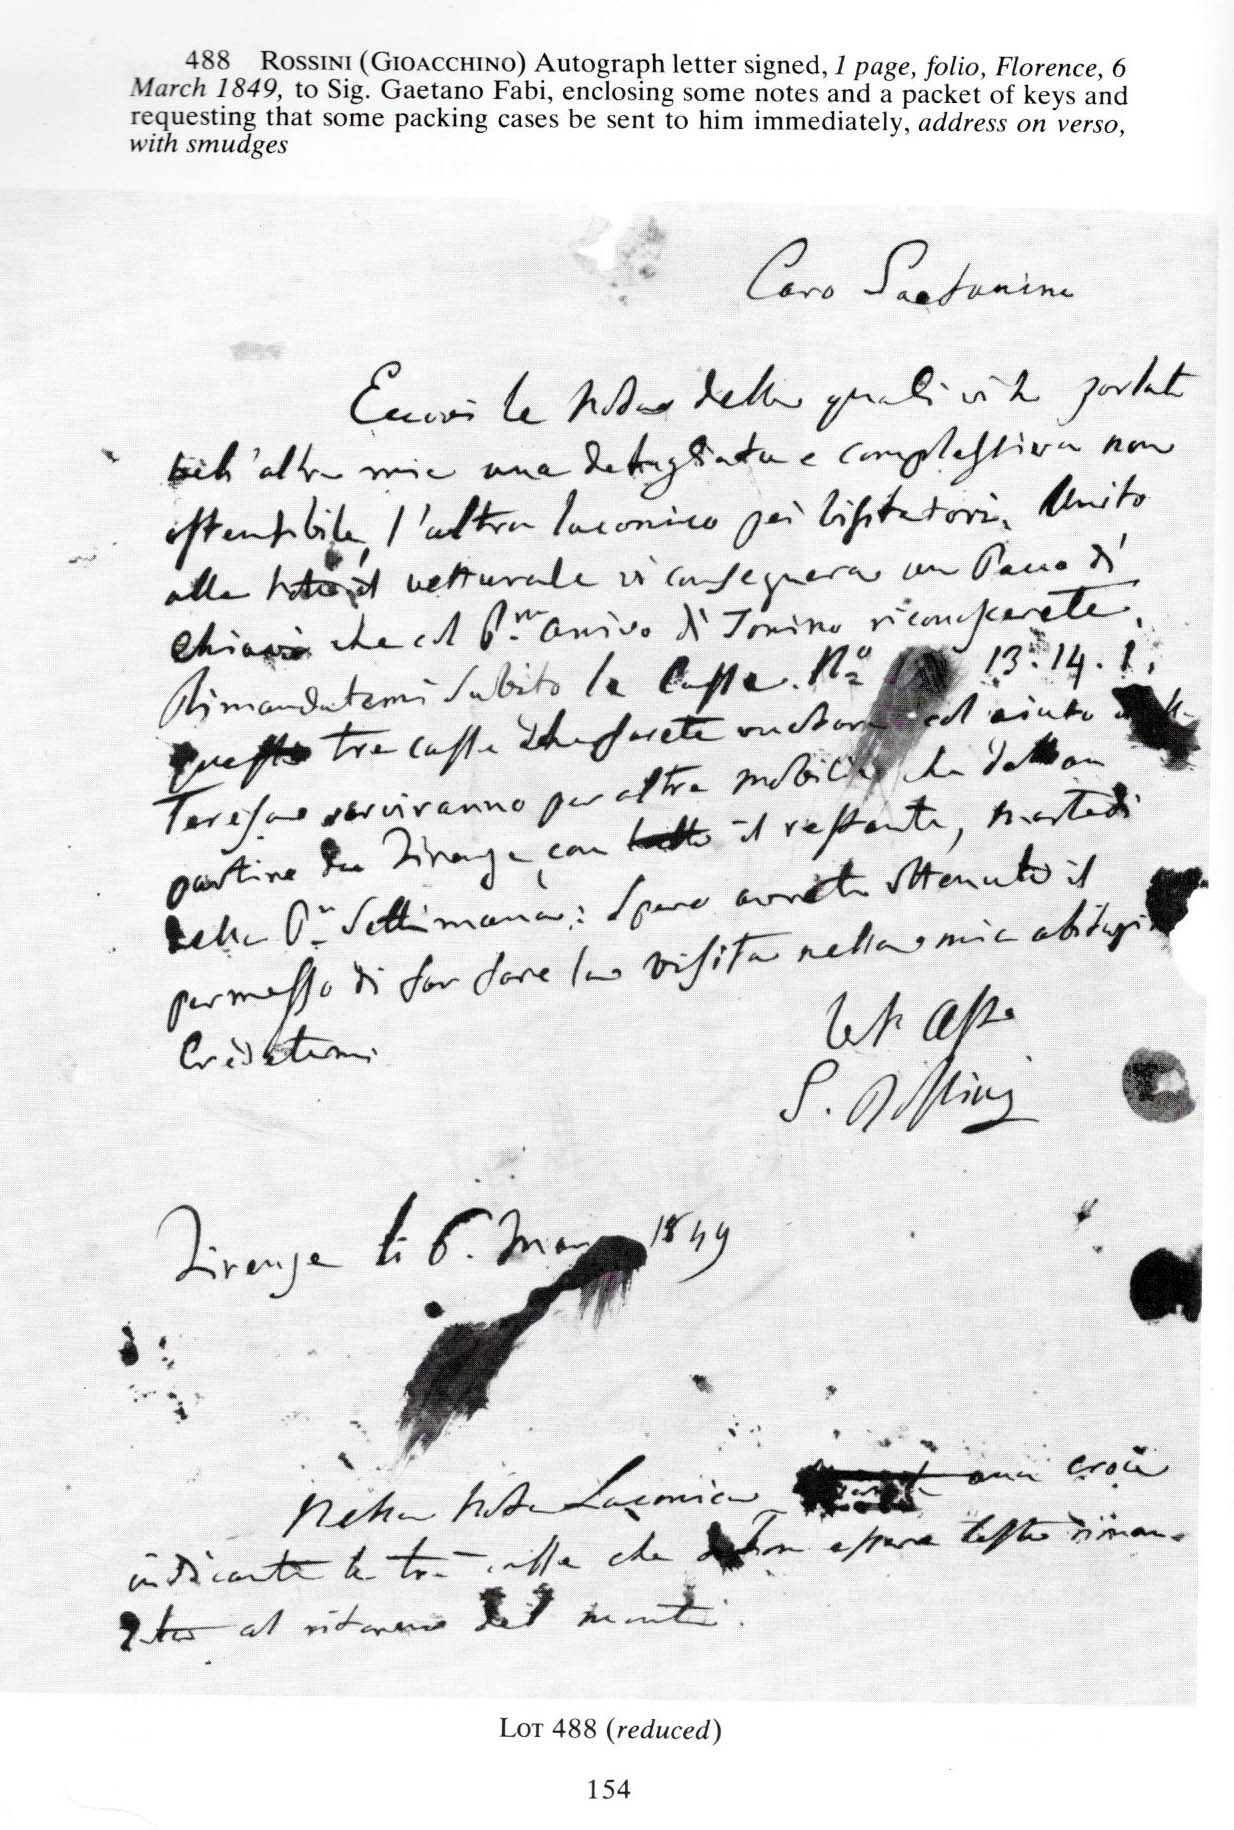 488 ROSSINI (GIOACCHINO) Autograph letter signed, 1 page, folio, Florence, 6
March 1849, to Sig. Gaetano Fabi, enclosing some notes and a packet of keys and
requesting that some packing cases be sent to him immediately, address on verso,
with smudges
Caro Gaetanino
Eccovi le Note delle quali vi ho parlato
nell'altra mia una detagliata e complessiva non
ostensibile, l'altra laconica pei visitatori. Unito
alle Note il vetturale vi consegnera un Pacco di
Chiavi che col P.mo arrivo di Tonino riconoscerete.
Rimandatemi Subito le Casse. No 13. 14. 1.
queste tre casse che farete vuotare col aiuto
Teresa serviranno per altra mobilia che
partire da Firenze con il restante, Martedi
della Settimana: Spero avrete ottenuto il
permesso di far fare la visita nella mia
Credetemi
Aff
G. Rossini
Firenze li 6. 1849
Nella Nota Laconica una croce
indicante le tre casse che essere
al ritorno del
LOT 488 (reduced)
154